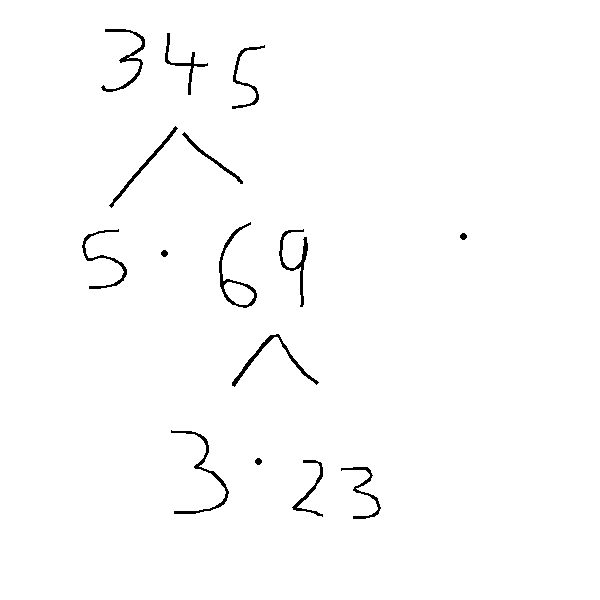 345
5 · 69
3 · 23